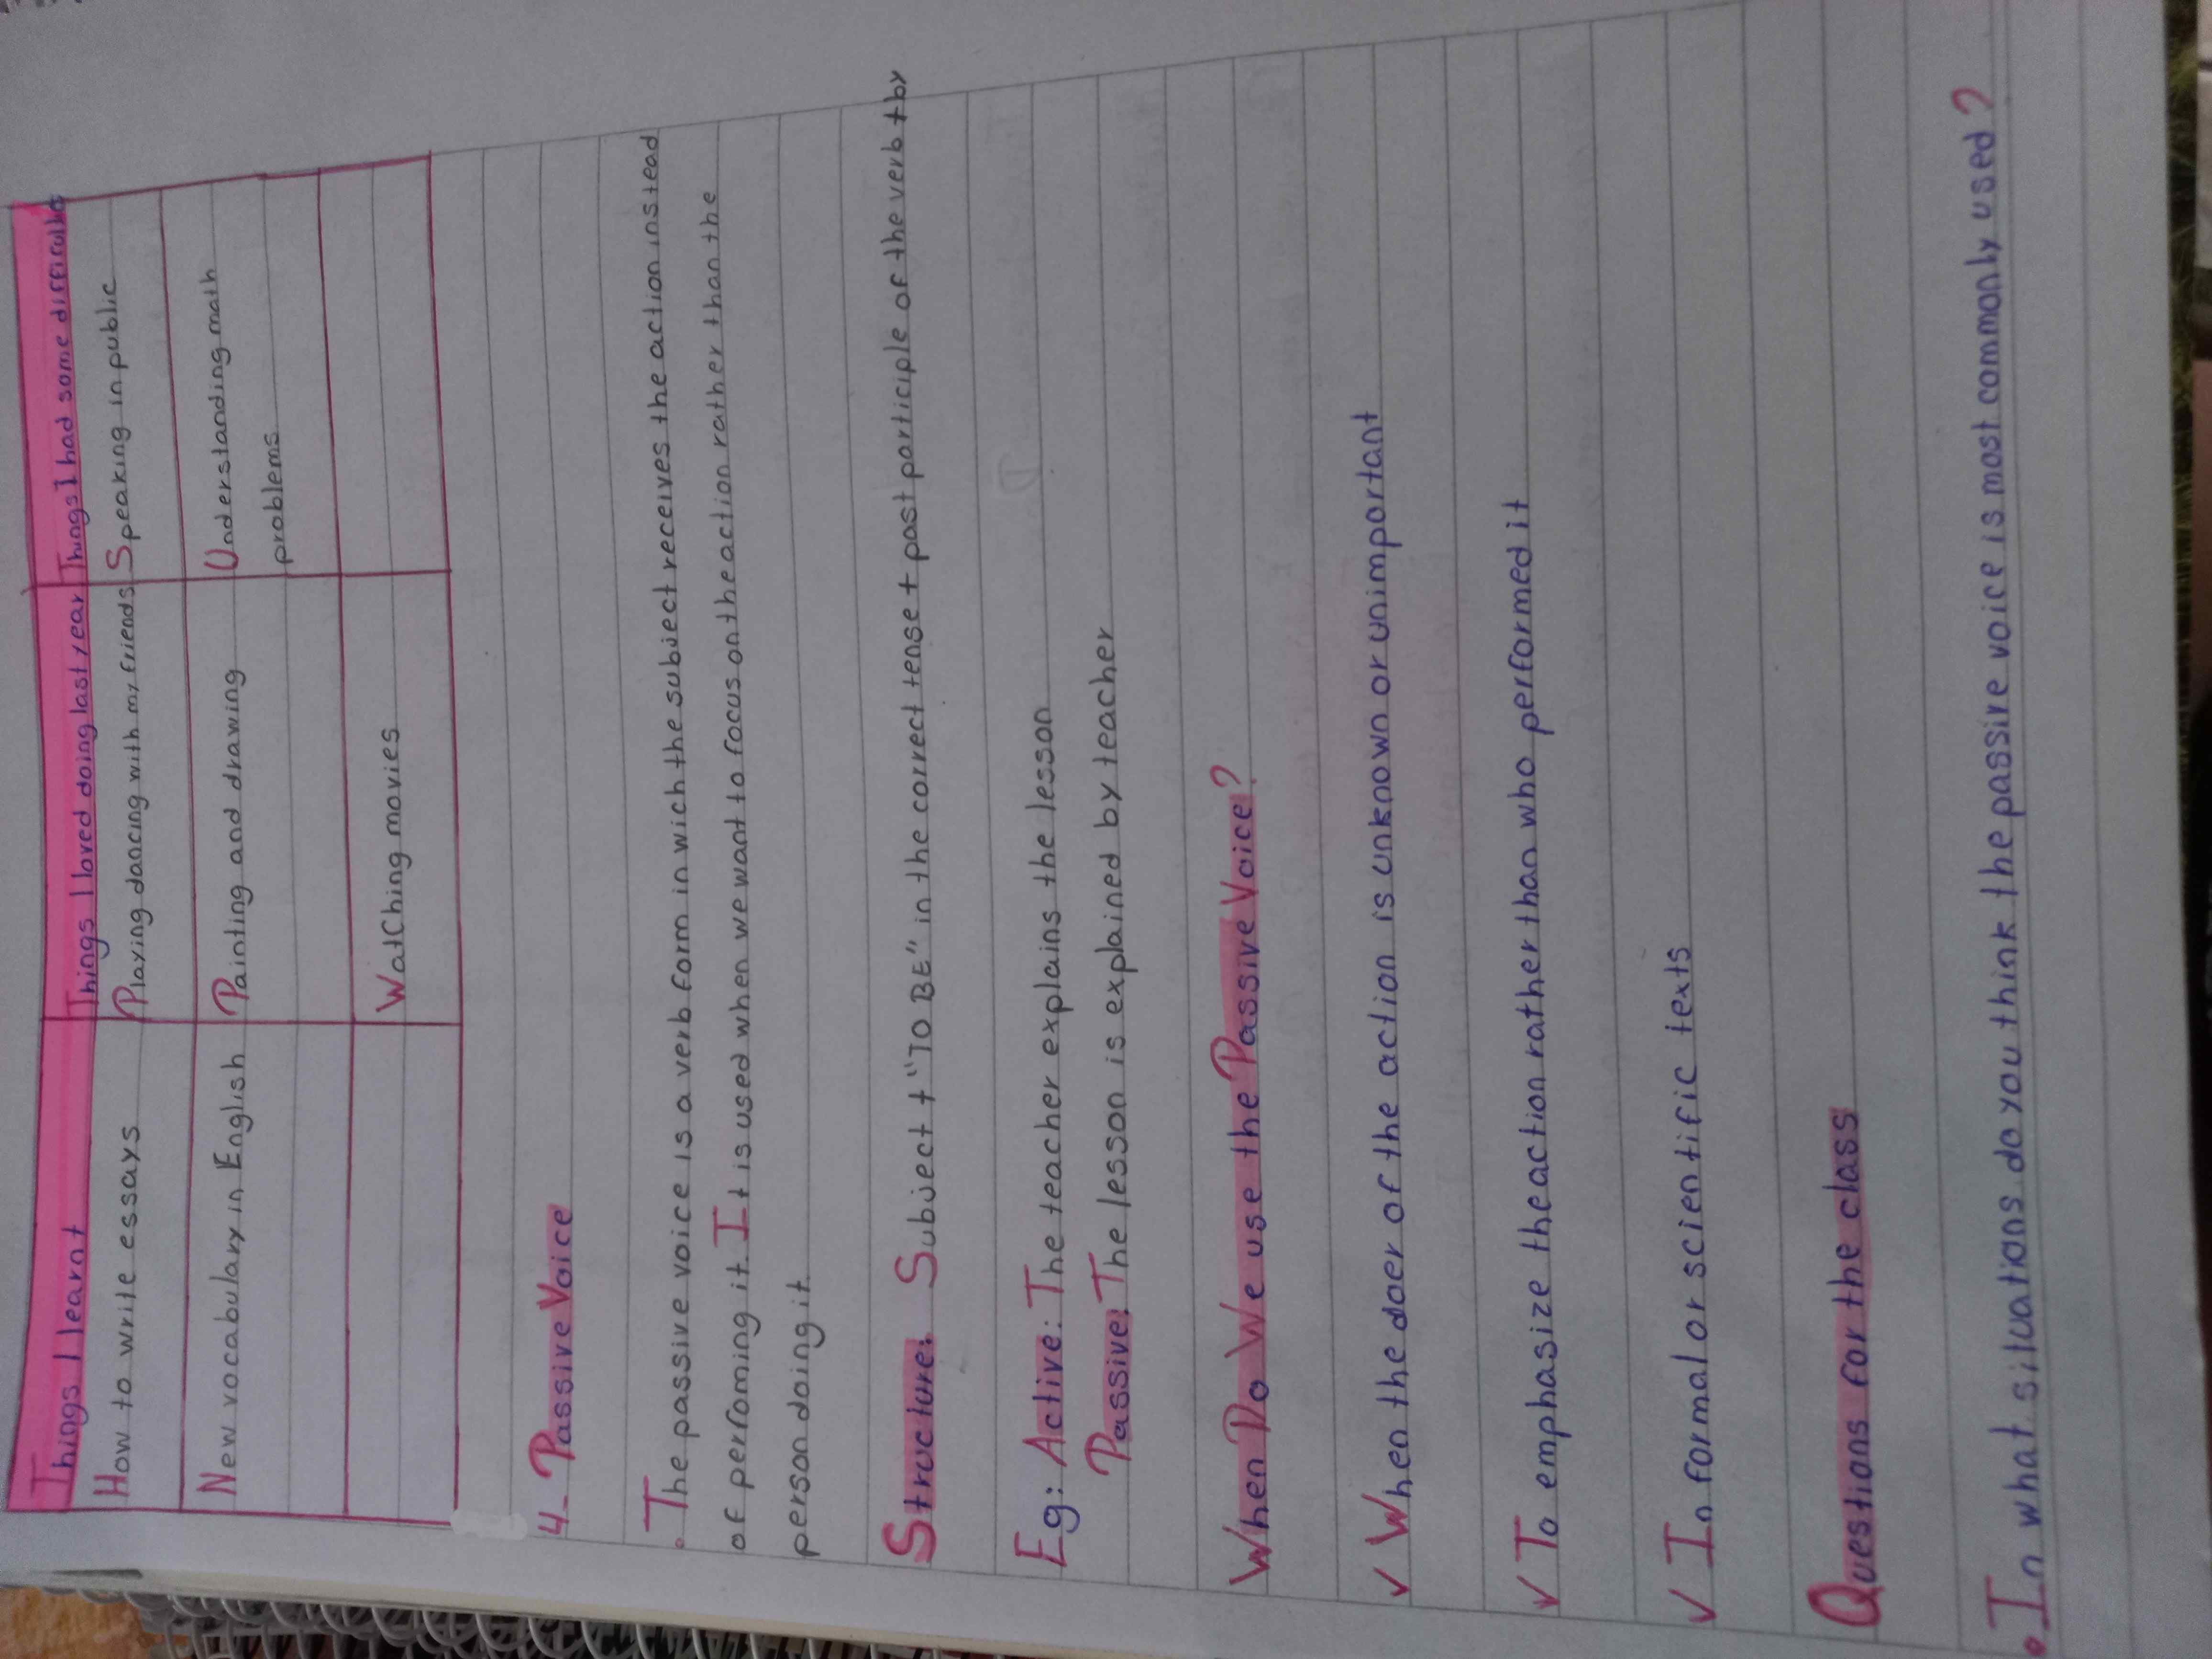 Things I learnt Things I loved doing last year Things I had some difficulty
How to write essays Playing dancing with my friends Speaking in public
New vocabulary in English Painting and drawing Understanding math
problems
WatChing movies
4- Passive Voice
• The passive voice is a verb form in wich the subject receives the action instead
of perfoming it. It is used when we want to focus on the action rather than the
person doing it.
Structure: Subject + "TO BE" in the correct tense + past participle of the verb + by
Eg: Active: The teacher explains the lesson
Passive: The lesson is explained by teacher
When Do We use the Passive Voice?
✓ When the doer of the action is unknown or unimportant
✓ To emphasize the action rather than who performed it
✓ In formal or scientific texts
Questions for the class
• In what situations do you think the passive voice is most commonly used?